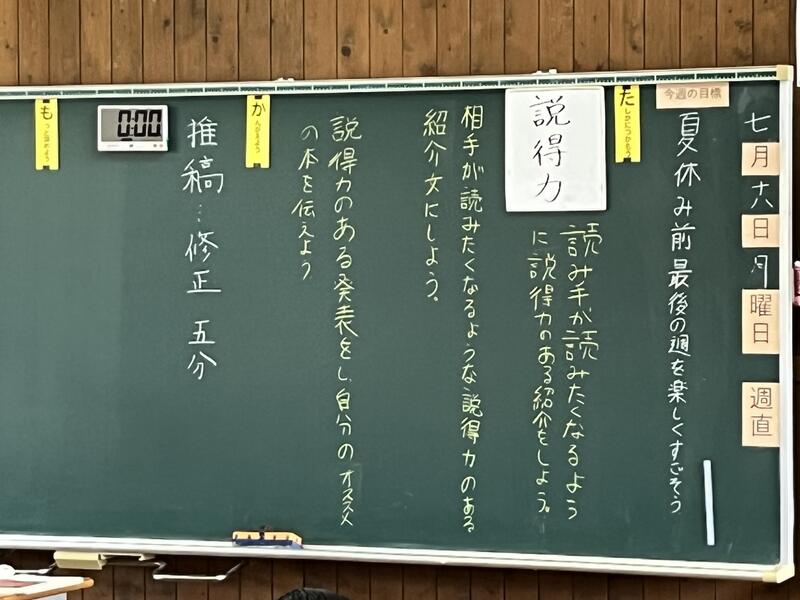 七月十八日月曜日
週直
今週の目標
夏休み前最後の週を楽しくすごそう
た
説得力
読み手が読みたくなるよう
に説得力のある紹介をしよう。
相手が読みたくなるような説得力のある
紹介文にしよう。
か
んがえよう
説得力のある発表をし、自分のオススメ
の本を伝えよう
推稿…修正 五分
0:00
も